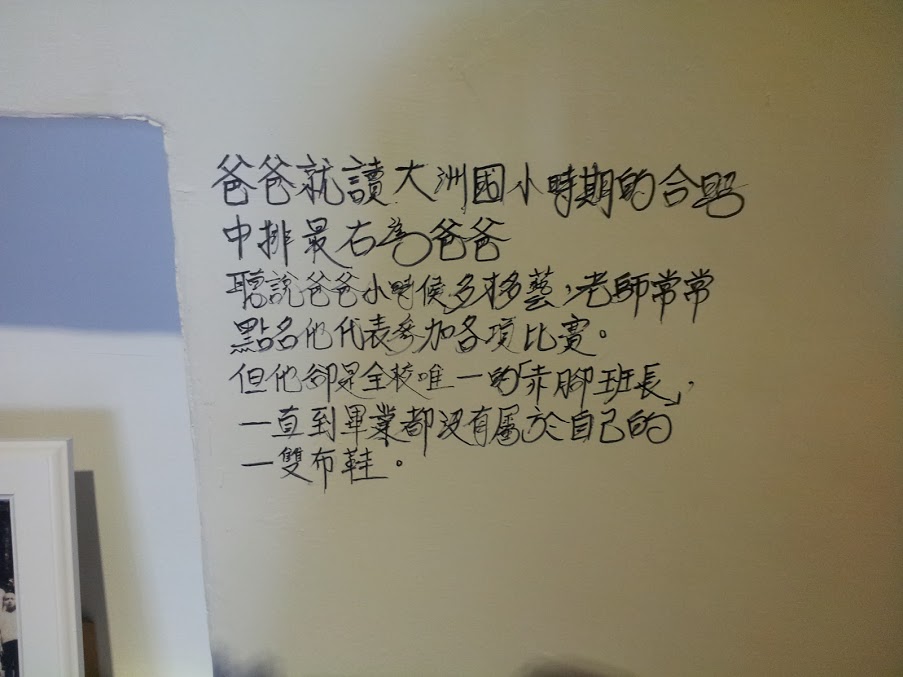 爸爸就讀大洲國小時期的合照
中排最右為爸爸
聽說爸爸小時候多才多藝，老師常常
點名他代表參加各項比賽。
但他卻是全校唯一的「赤腳班長」，
一直到畢業都沒有屬於自己的
一雙布鞋。